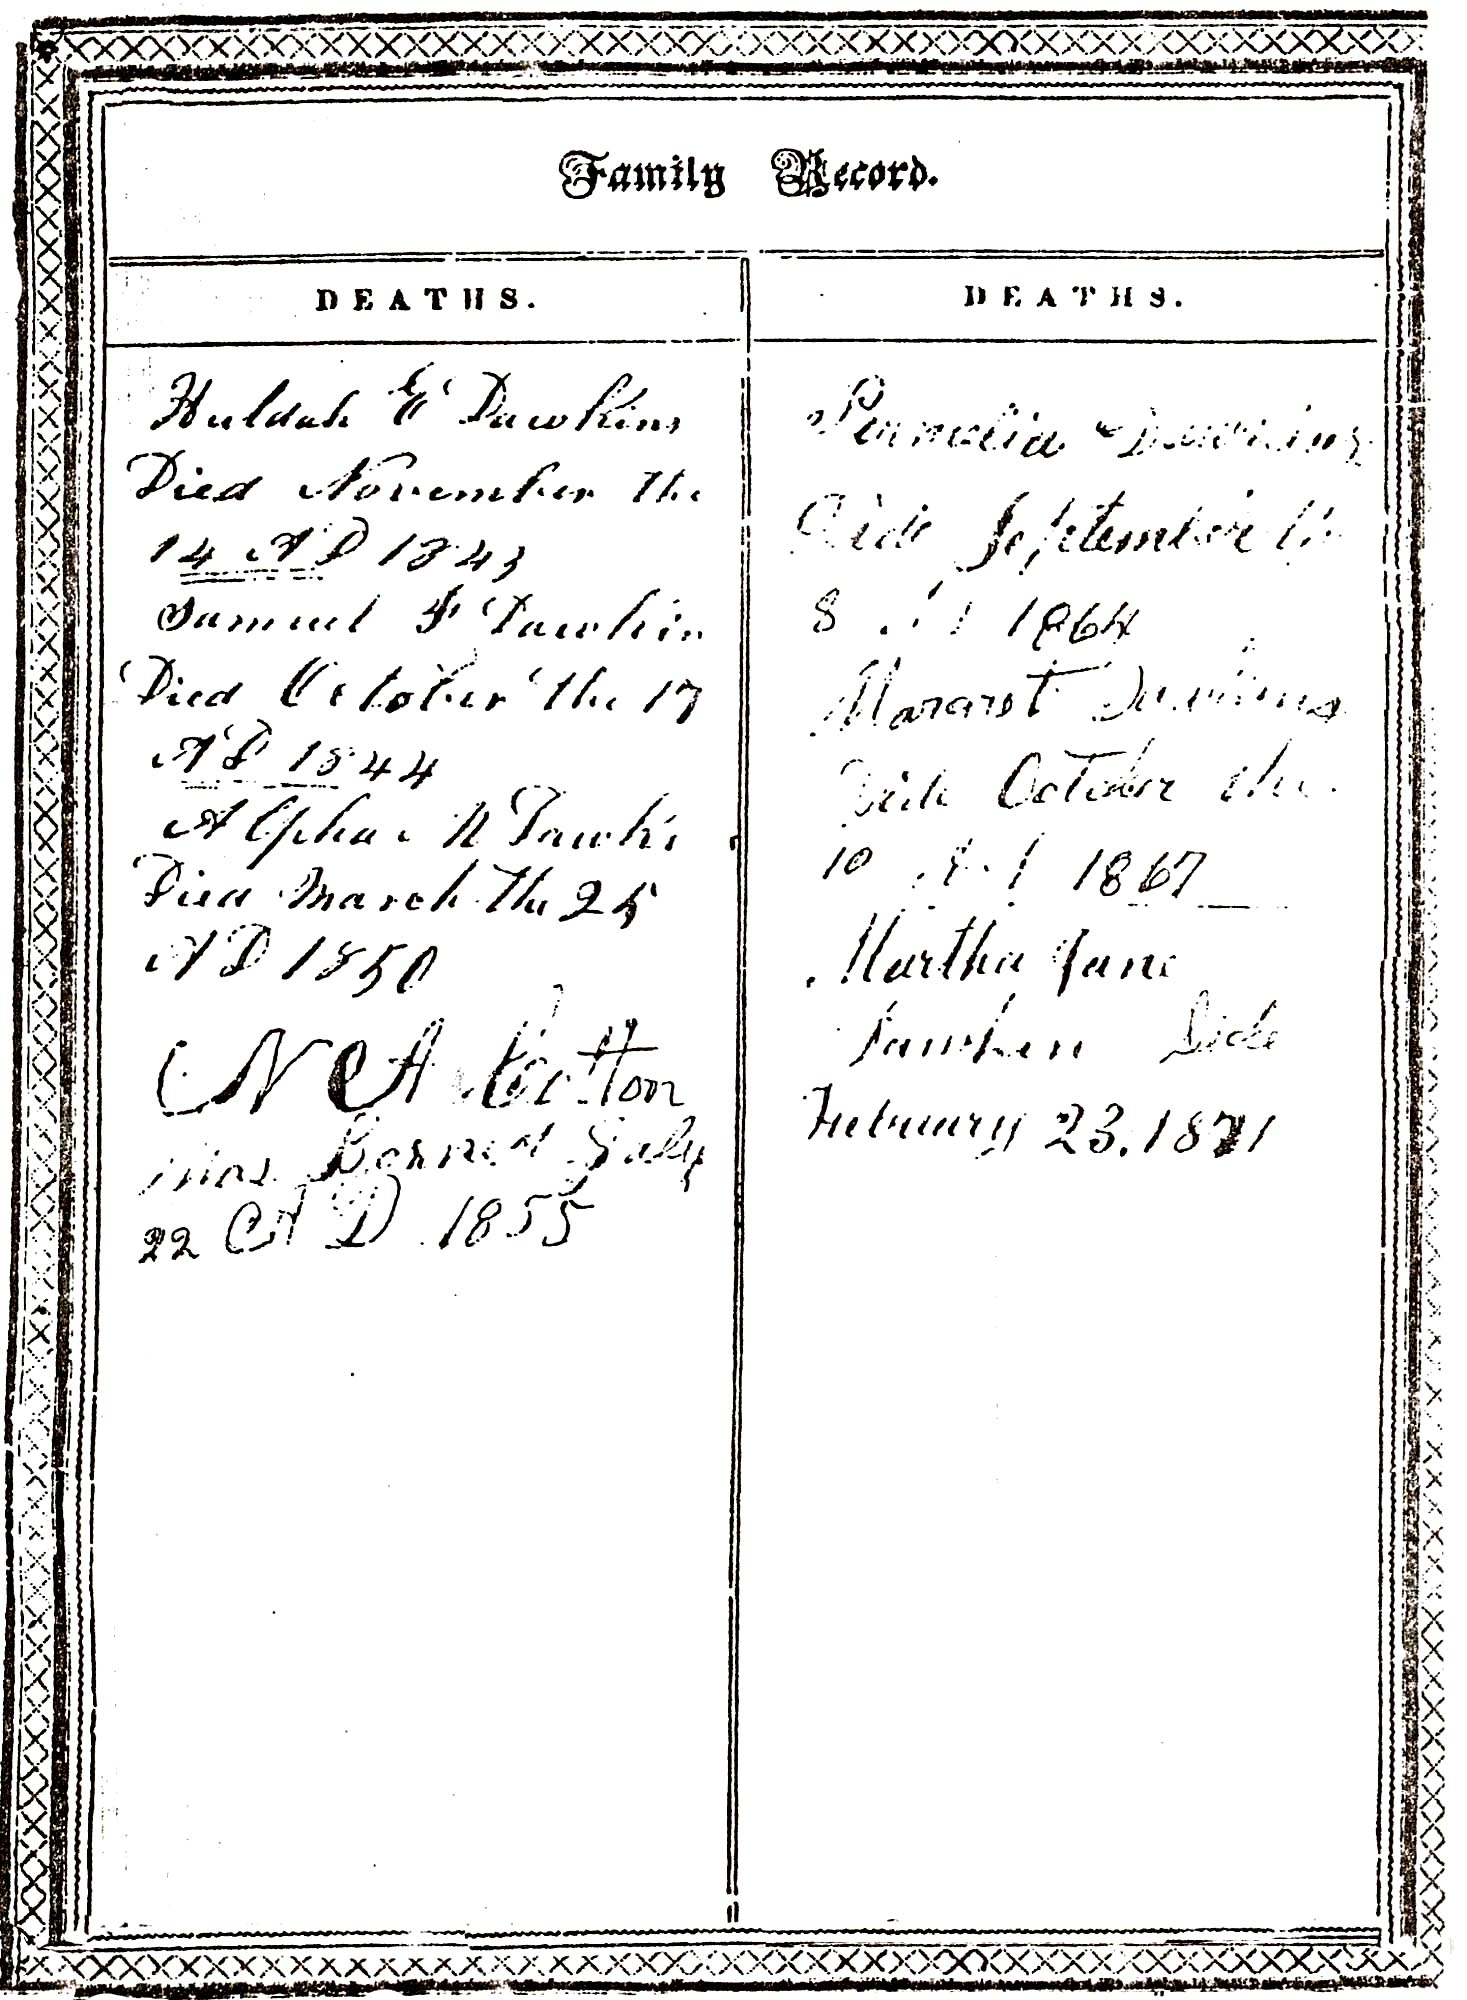 Family Record.
DEATHS.
Huldah E Dawkins
Died November the
14 AD 1843
Samuel F Dawkin
Died October the 17
AD 1844
Alpha N Dawki
Died March the 25
AD 1850
N A Cotton
was Borned July
22 A D 1855
DEATHS.
Permelia Dawkins
Dide September the
8 1864
Margaret Dawkins
Dide October the
10 1867
Martha Jane
Dawken Dide
Februury 23. 1871